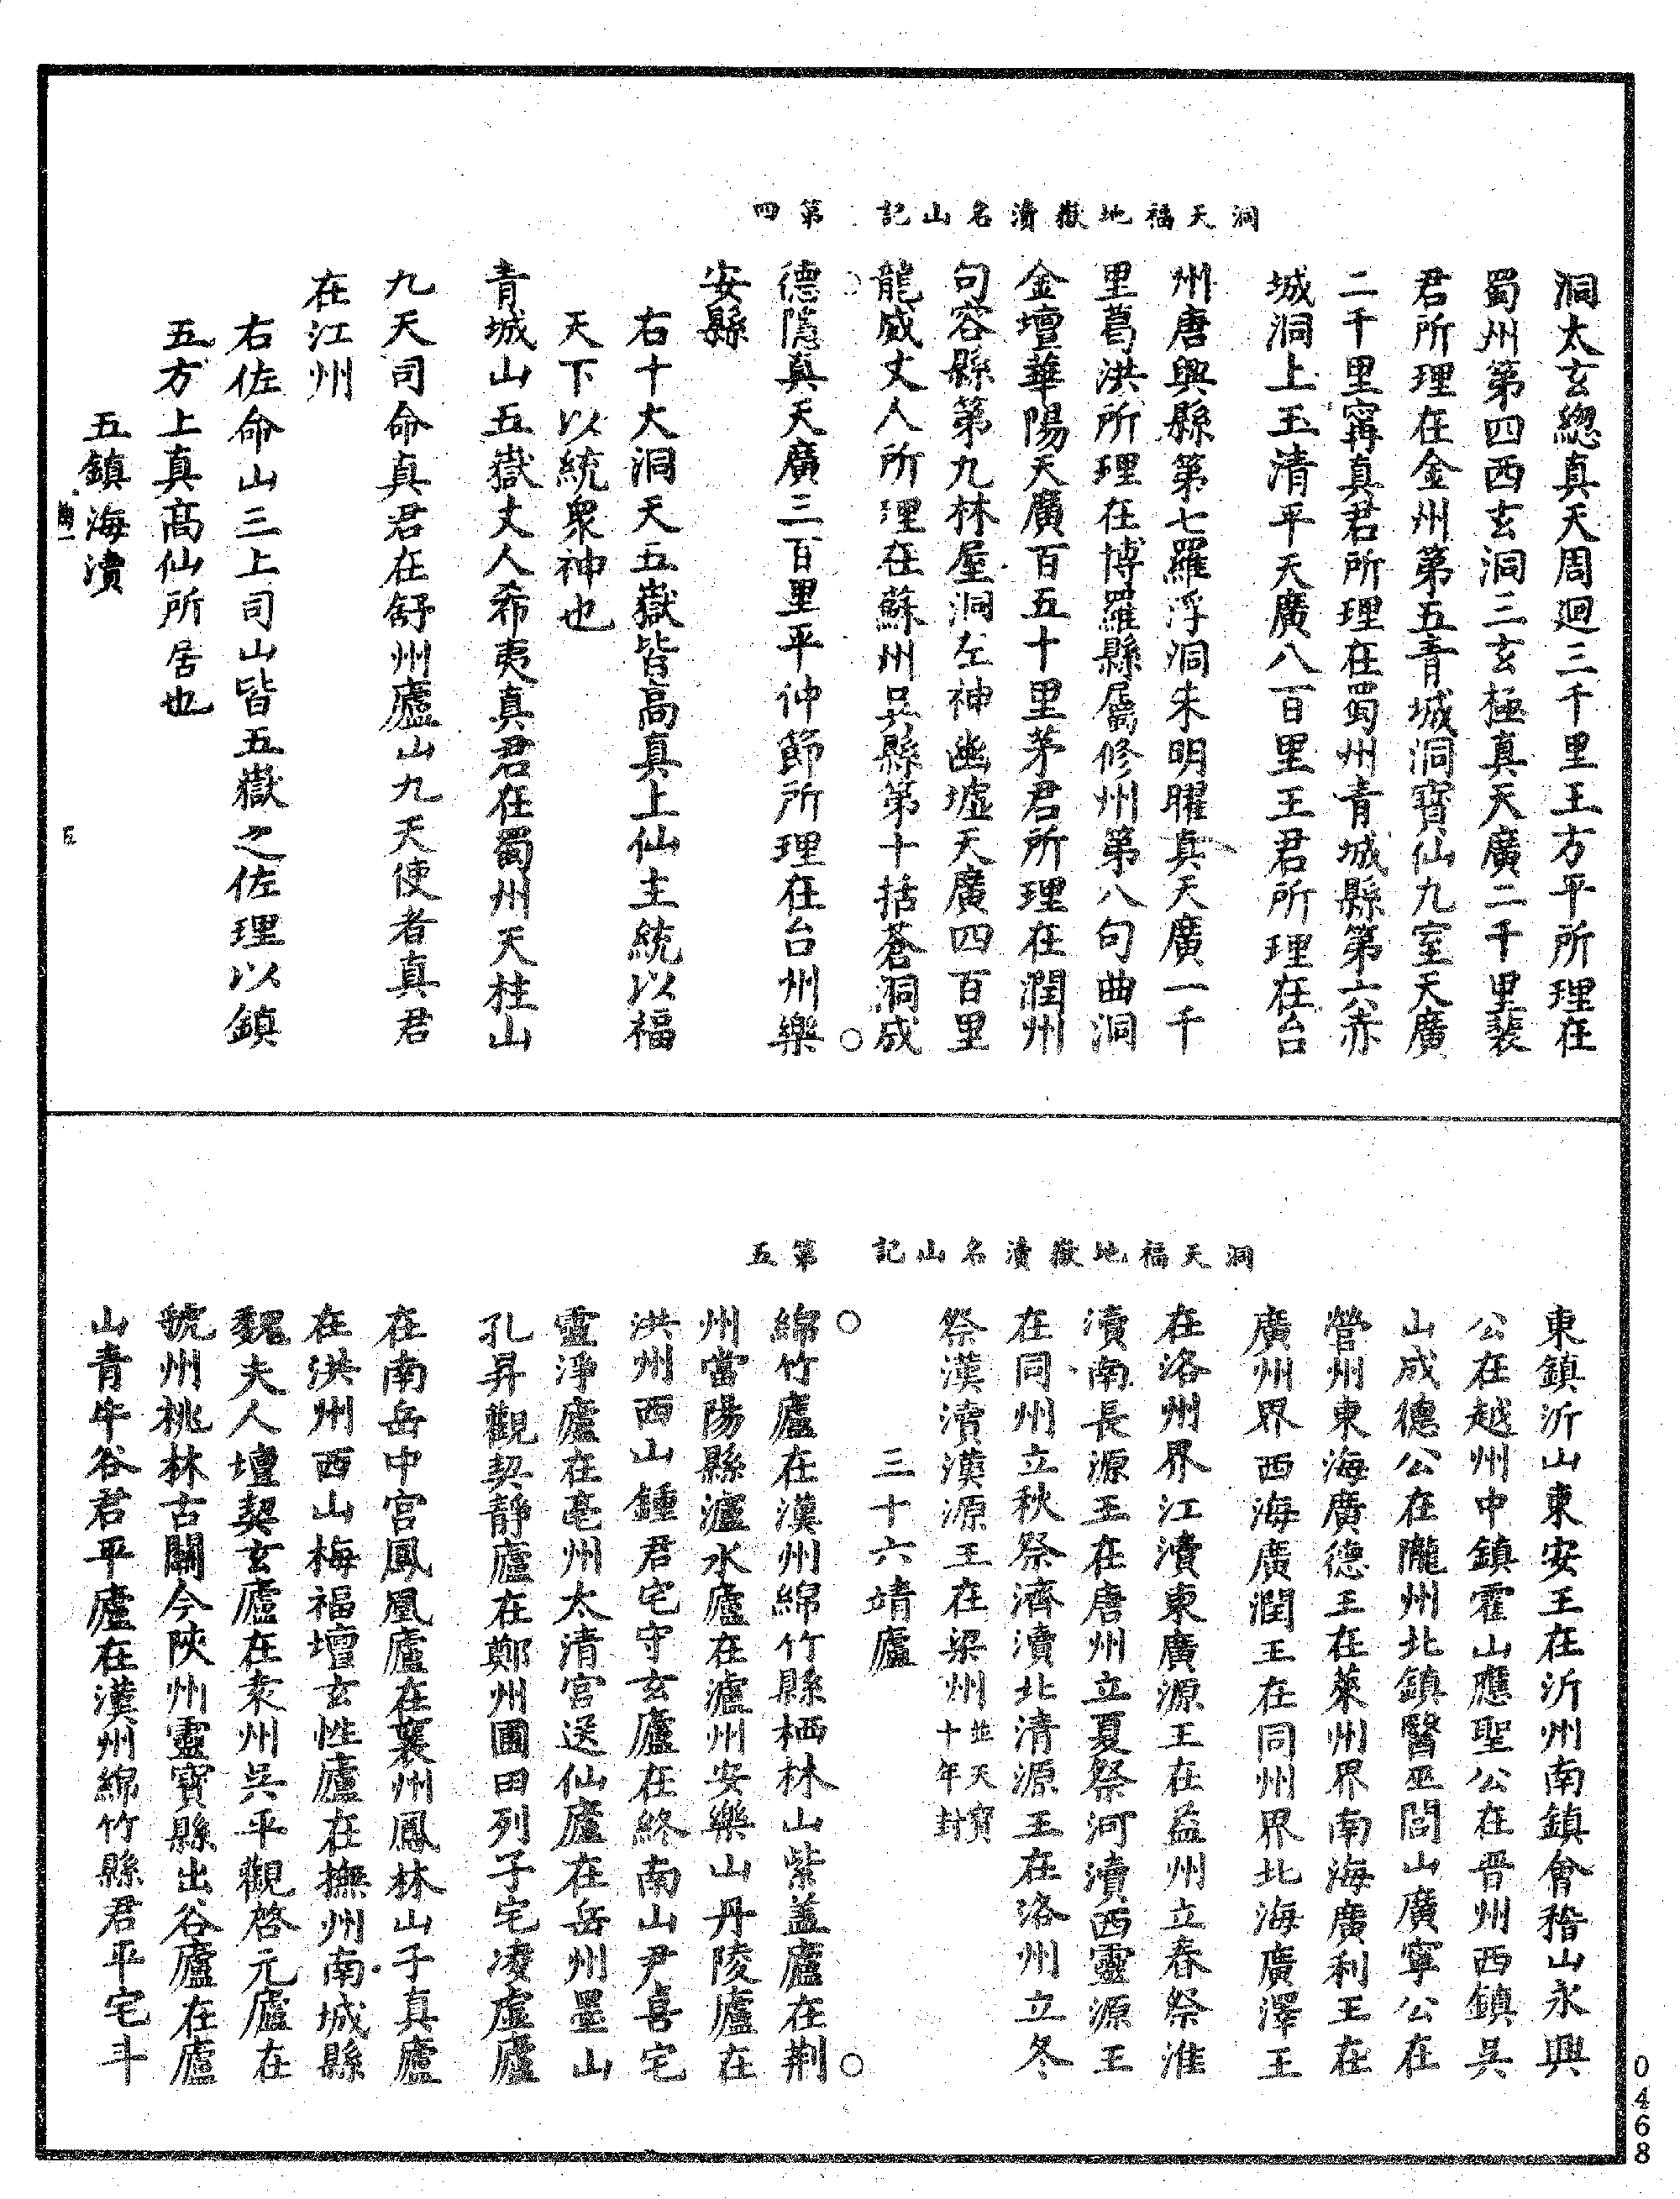 洞天福地嶽瀆名山記　第四
洞太玄總真天周迴三千里王方平所理在
蜀州第四西玄洞三玄極真天廣二千里裴
君所理在金州第五青城洞寶仙九室天廣
二千里甯真君所理在蜀州青城縣第六赤
城洞上玉清平天廣八百里王君所理在台
州唐興縣第七羅浮洞朱明曜真天廣一千
里葛洪所理在博羅縣屬修州第八句曲洞
金壇華陽天廣百五十里茅君所理在潤州
句容縣第九林屋洞左神幽墟天廣四百里
龍威丈人所理在蘇州吳縣第十括蒼洞成
德隱真天廣三百里平仲節所理在台州樂
安縣
右十大洞天五嶽皆高真上仙主統以福
天下以統衆神也
青城山五嶽丈人希夷真君在蜀州天柱山
九天司命真君在舒州廬山九天使者真君
在江州
右佐命山三上司山皆五嶽之佐理以鎮
五方上真高仙所居也
五鎮海瀆
洞天福地嶽瀆名山記　第五
東鎮沂山東安王在沂州南鎮會稽山永興
公在越州中鎮霍山應聖公在晋州西鎮吳
山成德公在隴州北鎮醫巫閭山廣寧公在
營州東海廣德王在萊州界南海廣利王在
廣州界西海廣潤王在同州界北海廣澤王
在洛州界江瀆東廣源王在益州立春祭淮
瀆南長源王在唐州立夏祭河瀆西靈源王
在同州立秋祭濟瀆北清源王在洛州立冬
祭漢瀆漢源王在梁州並天寶十年封
三十六靖廬
綿竹廬在漢州綿竹縣栖林山紫蓋廬在荆
州當陽縣瀘水廬在瀘州安樂山丹陵廬在
洪州西山鍾君宅守玄廬在終南山尹喜宅
靈淨廬在亳州太清宮送仙廬在岳州墨山
孔昇觀契静廬在鄭州圃田列子宅凌虛廬
在南岳中宮鳳凰廬在襄州鳳林山子真廬
在洪州西山梅福壇玄性廬在撫州南城縣
魏夫人壇契玄廬在袁州吳平觀啓元廬在
虢州桃林古關今陝州靈寶縣出谷廬在廬
山青牛谷君平廬在漢州綿竹縣君平宅斗
0468